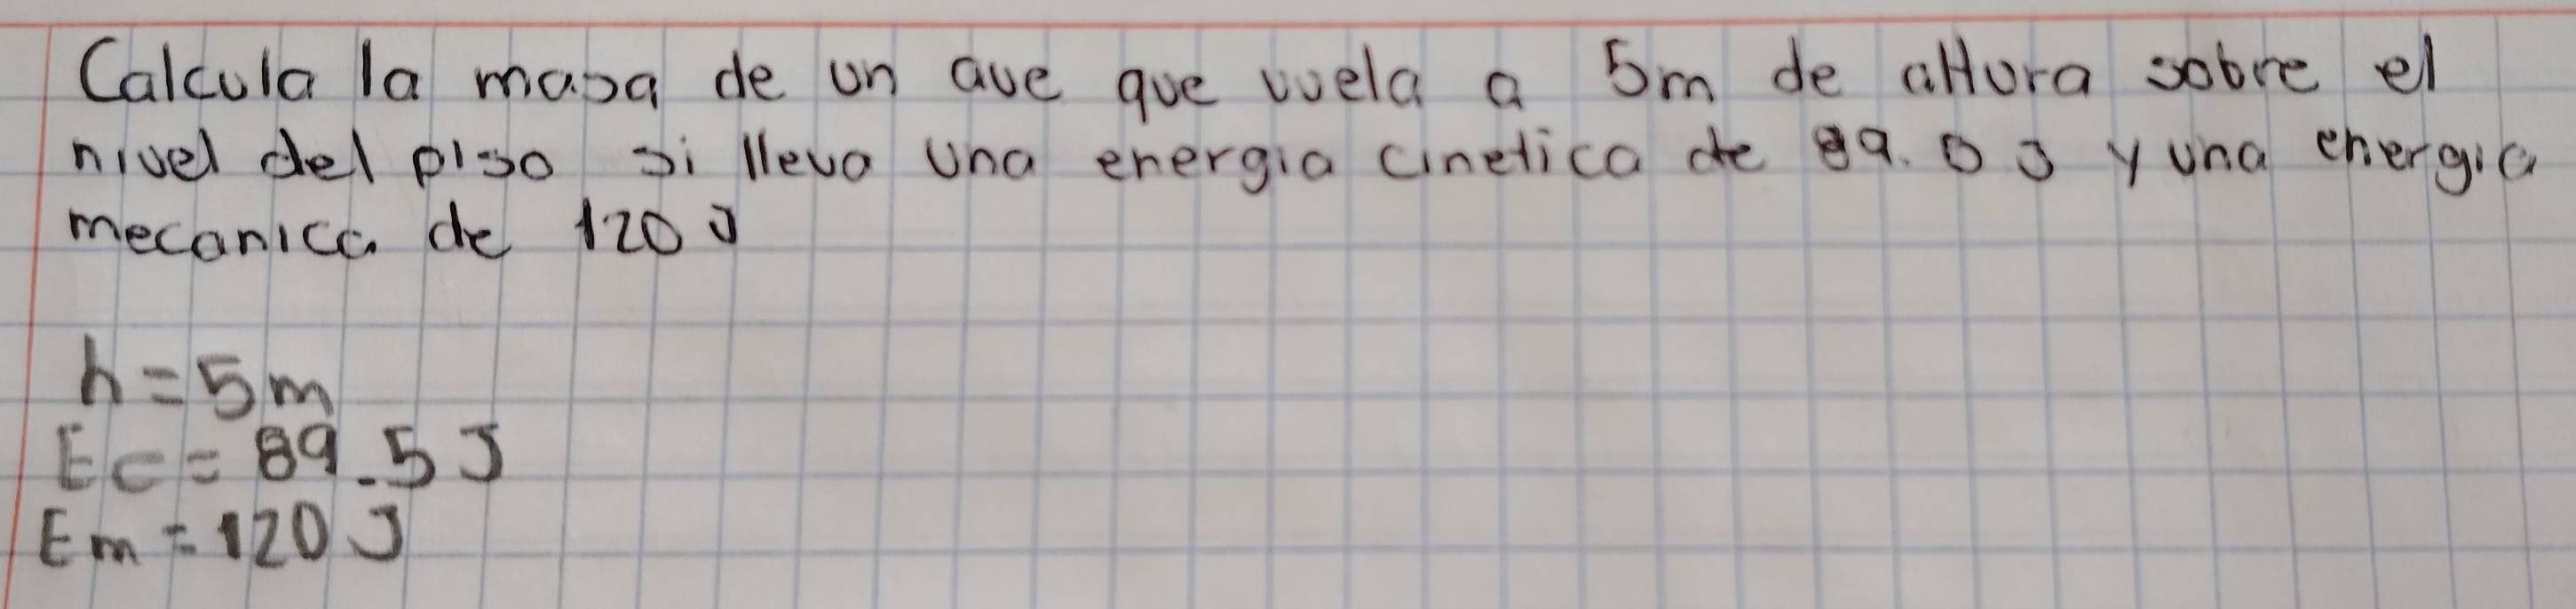 Calcula la masa de un ave que vuela a 5m de altura sobre el
nivel del piso si lleva una energia cinetica de 89.5 J y una energia
mecanica de 120 J
h=5m
Ec=89.5 J
Em=120 J